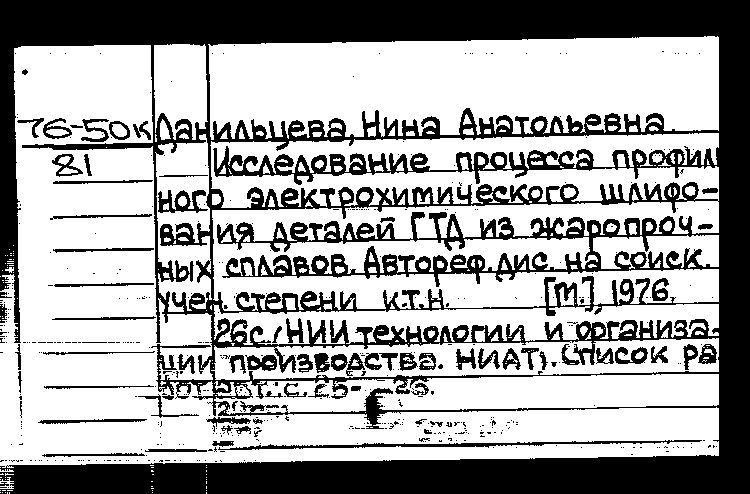 76-50к Данильцева, Нина Анатольевна.
81 Исследование процесса профиль
ного электрохимического шлифо-
вания деталей ГТД из жаропроч-
ных сплавов. Автореф. дис. на соиск.
учен. степени к.т.н. [М.], 1976.
26с. (НИИ технологии и организа-
ции производства. НИАТ). Список ра
бот авт.: с. 25-26.